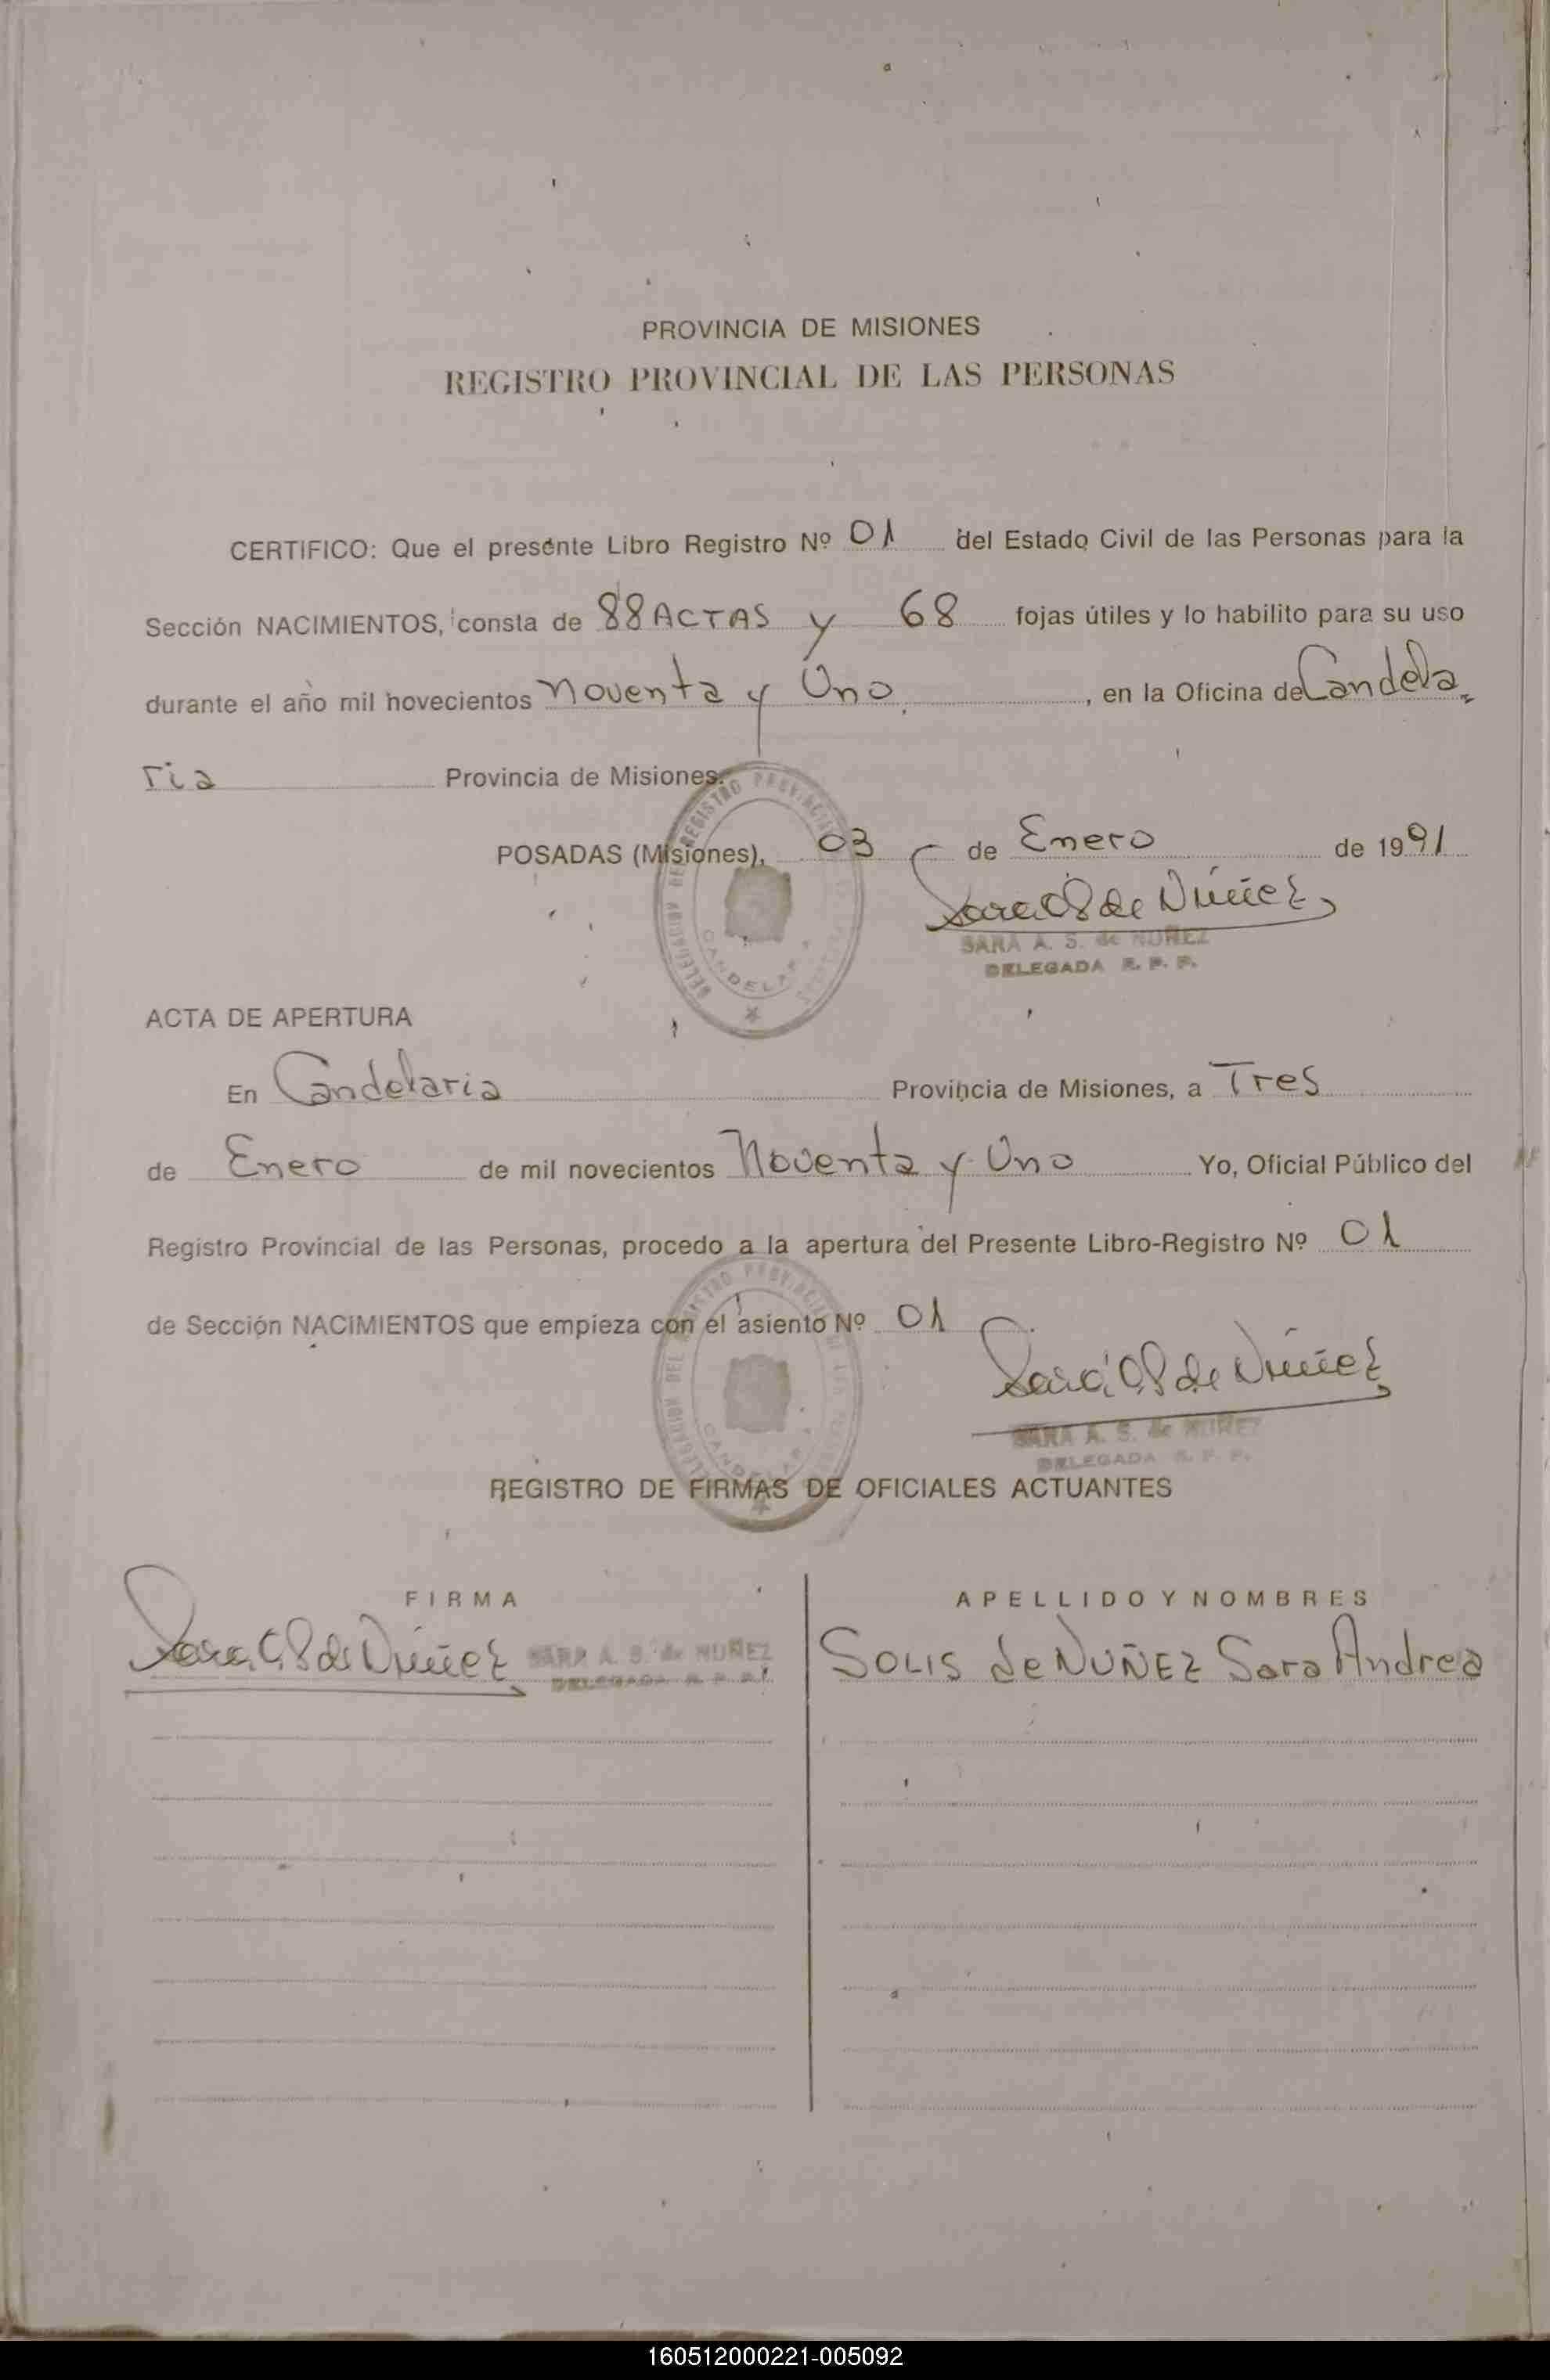 PROVINCIA DE MISIONES
REGISTRO PROVINCIAL DE LAS PERSONAS
CERTIFICO: Que el presente Libro Registro Nº 01 del Estado Civil de las Personas para la
Sección NACIMIENTOS, consta de 88 ACTAS y 68 fojas útiles y lo habilito para su uso
durante el año mil novecientos Noventa y Uno, en la Oficina de Candela
ria Provincia de Misiones.
POSADAS (Misiones), 03 de Enero de 1991
Sara A S de Núñez
SARA A. S. de NUÑEZ
DELEGADA R. P. P.
DELEGACION DEL REGISTRO PROVINCIAL DE LAS PERSONAS
CANDELARIA
ACTA DE APERTURA
En Candelaria Provincia de Misiones, a Tres
de Enero de mil novecientos Noventa y Uno Yo, Oficial Público del
Registro Provincial de las Personas, procedo a la apertura del Presente Libro-Registro Nº 01
de Sección NACIMIENTOS que empieza con el asiento Nº 01
Sara A S de Núñez
SARA A. S. de NUÑEZ
DELEGADA R. P. P.
DELEGACION DEL REGISTRO PROVINCIAL DE LAS PERSONAS
CANDELARIA
REGISTRO DE FIRMAS DE OFICIALES ACTUANTES
FIRMA APELLIDO Y NOMBRES
Sara A S de Núñez SARA A. S. de NUÑEZ SOLIS de NUÑEZ Sara Andrea
DELEGADA R. P. P.
160512000221-005092